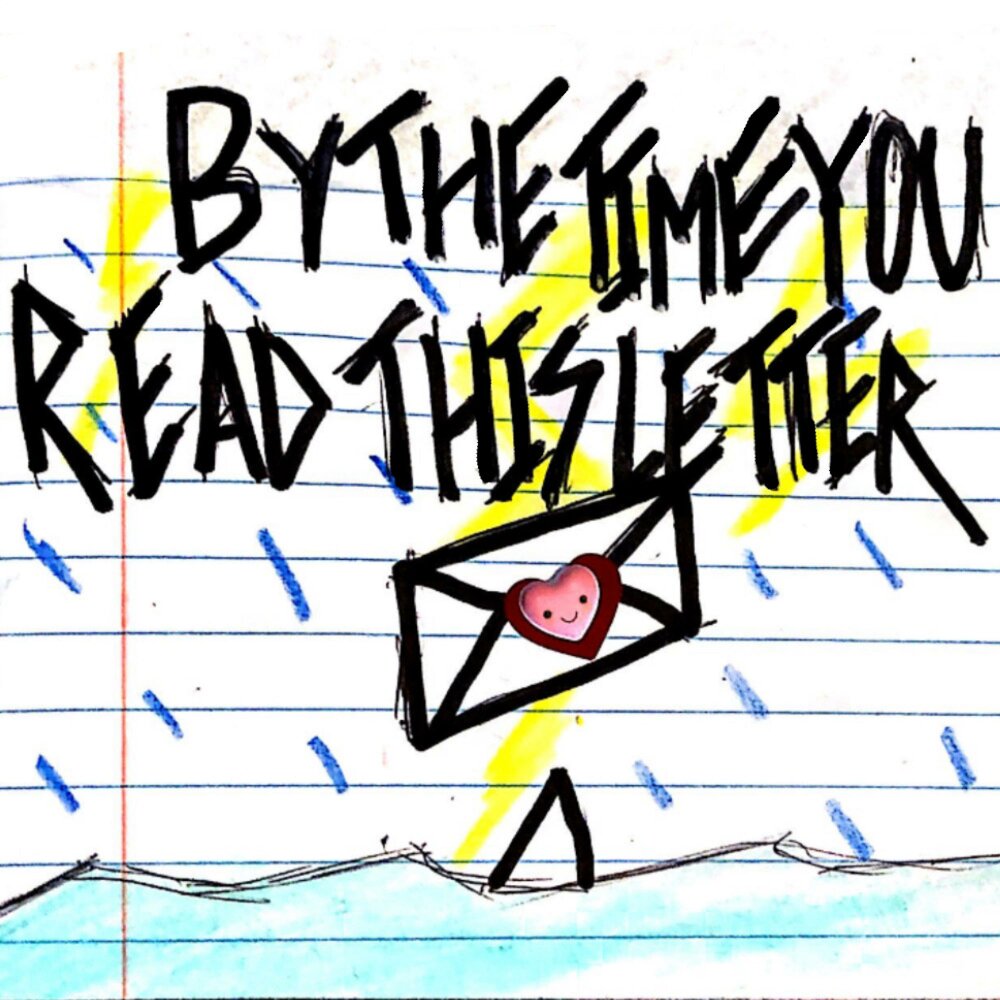 BY THE TIME YOU
READ THIS LETTER